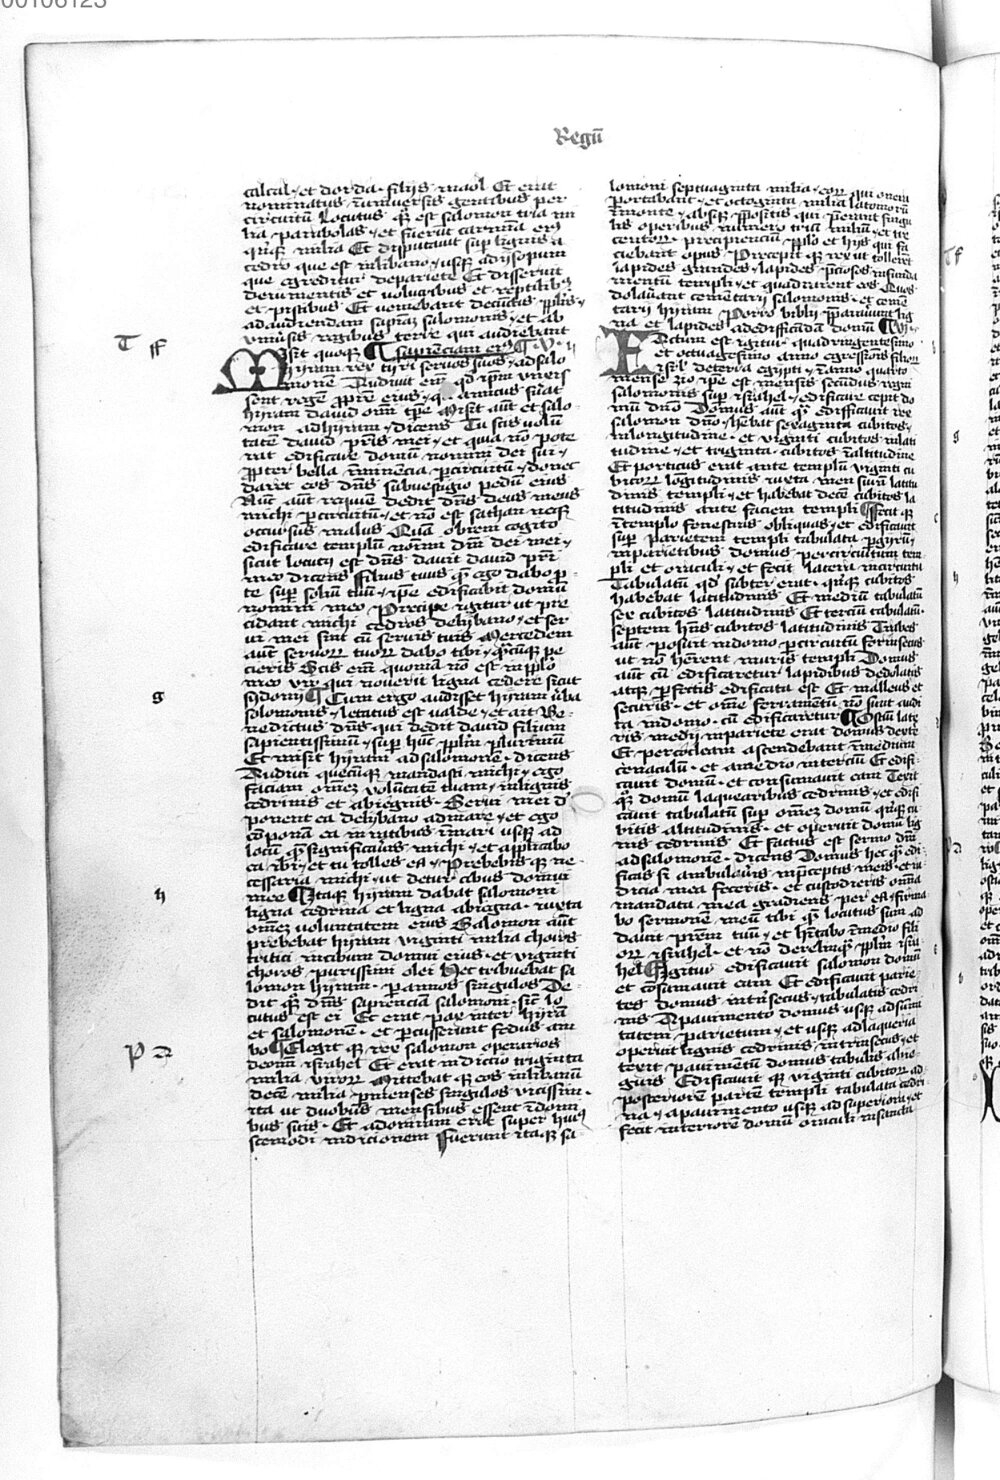 00106123
Regū
calcal · et dorda · filijs maol Et erat
nominatus ī vniuersis gentibus per
circuitū Locutus qȝ est salomon tria mi
lia parabolas · et fuerūt carmina eiꝰ
quīqȝ milia Et disputauit sup lignis a
cedro que est in libano · vsqȝ ad ysopum
que egreditur de pariete Et disseruit
de iumentis et volucribus et reptilibꝫ
et piscibus Et veniebant de cūctis pplis
ad audiendam sapiam salomonis · et ab
vniūsis regibus terre qui audiebant
sapienciam eiꝰ
T ff
Misit quoqȝ
hyram rex tyri seruos suos · ad salo
monē Audiuit em̄ qd ipm vnxis
sent regē p pre eius · q amicus fuāt
hyram dauid om̄i tpe Misit aūt et salo
mon ad hyram · dicens Tu scis volū
tatē dauid pris mei · et quia nō pote
rat edificare domū nomini dei sui ·
ppter bella īminencia p circuitū · donec
daret eos dns sub vestigio pedū eius
Nūc aūt requiē dedit dns deus meus
michi p circuitū · et nō est sathan neqȝ
occursus malus Quā obrem cogito
edificare templū nōmi dni dei mei ·
sicut locutꝰ est dns dauit dauid pri
meo dicens filius tuus quē ego dabo p
te sup soliū tuū · ipe edificabit domū
nomini meo Precipe igitur ut pre
cidant michi cedros de lybano · et ser
ui mei sint cū seruis tuis Mercedem
aūt seruorꝝ tuorꝝ dabo tibi · quācūqȝ pe
cieris Scis em̄ quomā nō est in pplo
meo vir qui nouerit ligna cedere sicut
g
sydonij Cum ergo audisset hyram v̄ba
salomonis · letatus est valde · et ait Be
nedictus dns qui dedit dauid filium
sapientissimū · sup hūc pplm plurimū
Et misit hyram ad salomonē · dicens
Audiui quecūqȝ mandasti michi · ego
faciam omēꝫ volūtatē tuam · in lignis
cedrinis et abiegnis · Serui mei de
ponent ea de lybano ad mare · et ego
cōponā ea in ratibus ī mari usqȝ ad
locū quē significaūis michi · et applicabo
ea ibi · et tu tolles ea · Prebebis qȝ ne
cessaria michi · ut detur cibus domui
h
mee Itaqȝ hyram dabat salomoni
ligna cedrina et ligna abiegna · iuxta
omēꝫ voluntatem eius Salomon aūt
prebebat hyram viginti milia choros
tritici in cibum domui eius · et viginti
choros purissimi olei Hec tribuebat sa
lomon hyram · p annos singulos De
dit qȝ dns sapienciā salomoni · sicut lo
cutus est ei Et erat pax inter hyrā
et salomonē · et pcusserunt fedus am
p a
bo Elegit qȝ rex salomon operarios
de om̄i israhel Et erat indictio triginta
milia virorꝝ Mittebat qȝ eos in libanū
decē milia p menses singulos vicissim ·
ita ut duobus mensibus essent ī domi
bus suis · Et adoniram erat super huiꝰ
scemodi indicionem Fuerunt itaqȝ sa
lomoni septuaginta milia · eorꝝ qui onera
portabant · et octoginta milia latomorū
ī monte · absqȝ ppositis qui perant singu
lis operibus numero triū milium · et tre
centorꝝ · precipienciū pplo et hijs qui fa
ciebant opus Precepit qȝ rex ut tollerēt
lapides grandes · lapides pciosos in funda
mentū templi · et quadrarent eos Quos
dolauerūt cementarij salomonis · et ceme
tarij hyram Porro biblij pparauerūt lig
na et lapides ad edificādā domū Vi
Factum est igitur quadringentesimo
et octuagesimo anno egressionis filiorꝝ
isrl de terra egypti · ī anno quarto
mense zio ipe est mensis secūdus regni
salomonis sup israhel · edificare cepit do
mū dno Domus aūt quā edificauit rex
salomon dno · hēbat sexaginta cubitos
in longitudine · et viginti cubitos in lati
tudine · et triginta cubitos ī altitudine
Et porticus erat ante templū viginti cu
bitorꝝ lōgitudinis iuxta mensurā latitu
dinis templi · et habebat decē cubitos la
titudinis ante faciem templi Fecit qȝ
ī templo fenestras obliquas · et edificauit
sup parietem templi tabulata p gyrū ·
in parietibus domus · per circūitum tem
pli et oraculi · et fecit latera in circuitu
Tabulatū qd subter erat · quīqȝ cubitos
habebat latitudinis Et mediū tabulatū
sex cubitos latitudinis Et terciū tabulatū
septem hns cubitos latitudinis Trabes
aūt posuit in domo p circuitū forinsecus
ut nō hererent muris templi Domus
aūt cū edificaretur lapidibus dedolatis
atqȝ pfectis edificata est Et malleus et
securis · et om̄e ferramentū nō sunt audi
ta in domo · cū edificaretur Ostiū late
ris medij in pariete erat domus dextre
Et per cocleam ascendebant ī medium
cenaculū · et a medio in tercium Et edifi
cauit domū · et consumauit eam Texit
qȝ domū laquearibus cedrinis · et edifi
cauit tabulatū sup omēꝫ domū quīqȝ cu
bitis altitudinis · et operuit domū lig
nis cedrinis Et factus est sermo dni
ad salomonē · dicens Domus hec quā edi
ficas si ambulaūis in pceptis meis · et iu
dicia mea feceris · et custodieris omīa
mandata mea gradiens per ea · firma
bo sermonē meū tibi quē locutus sum ad
dauit prem tuū · et hītabo ī medio fili
orꝝ israhel · et nō derelinquā pplm isra
hel Igitur edificauit salomon domū
et cōsumauit eam Et edificauit parie
tes domus intrīsecus tabulatis cedri
nis A pauimento domus usqȝ ad sūmi
tatem parietum · et usqȝ ad laquearia
operuit lignis cedrinis intrinsecus · et
texit pauimentū domus tabulis abie
gnis Edificauit qȝ viginti cubitorꝝ ad
posteriorē partē templi tabulata cedri
na · a pauimento usqȝ ad superiora · et
fecit interiorē domū oraculi in sancta